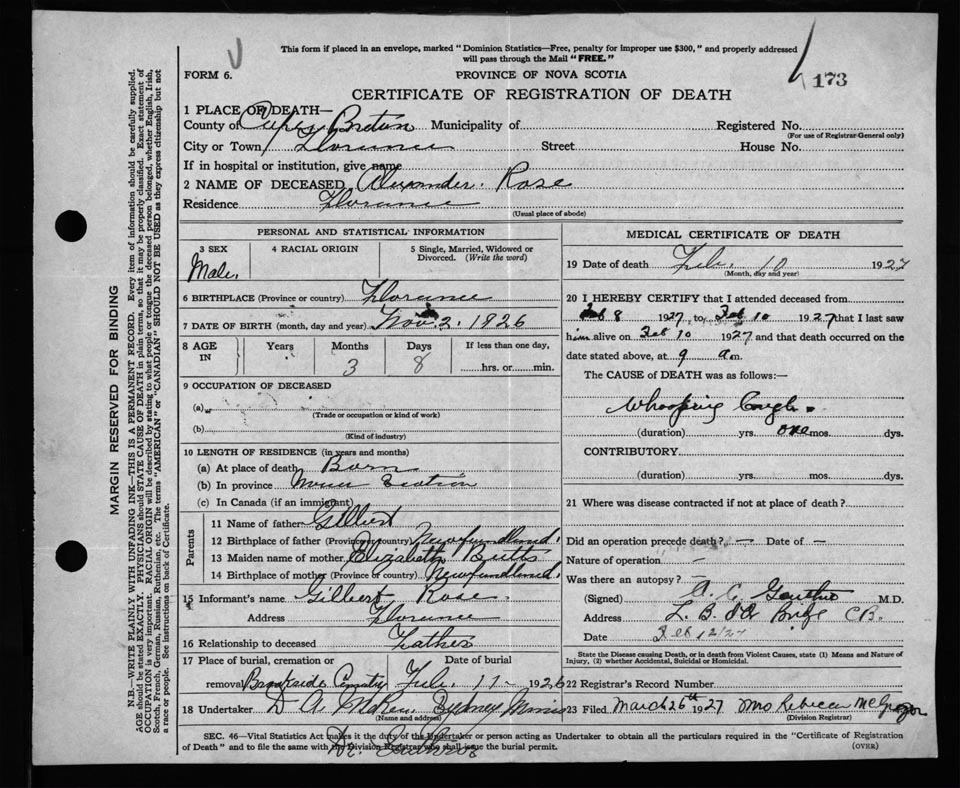 This form if placed in an envelope, marked "Dominion Statistics—Free, penalty for improper use $300," and properly addressed
will pass through the Mail "FREE."
FORM 6.
PROVINCE OF NOVA SCOTIA
173
CERTIFICATE OF REGISTRATION OF DEATH
1 PLACE OF DEATH—
County of Cape Breton Municipality of Registered No.
(For use of Registrar-General only)
City or Town Florence Street House No.
If in hospital or institution, give name
2 NAME OF DECEASED Alexander. Rose
Residence Florence
(Usual place of abode)
PERSONAL AND STATISTICAL INFORMATION
3 SEX 4 RACIAL ORIGIN 5 Single, Married, Widowed or
Divorced. (Write the word)
Male.
6 BIRTHPLACE (Province or country) Florence
7 DATE OF BIRTH (month, day and year) Nov. 2. 1926
8 AGE IN Years Months Days If less than one day,
3 8 hrs. or min.
9 OCCUPATION OF DECEASED
(a)
(Trade or occupation or kind of work)
(b)
(Kind of industry)
10 LENGTH OF RESIDENCE (in years and months)
(a) At place of death Born
(b) In province Nova Scotia
(c) In Canada (if an immigrant)
Parents
11 Name of father Gilbert
12 Birthplace of father (Province or country) Newfoundland.
13 Maiden name of mother Elizabeth Butts
14 Birthplace of mother (Province or country) Newfoundland.
15 Informant's name Gilbert Rose.
Address Florence
16 Relationship to deceased Father
17 Place of burial, cremation or Date of burial
removal Brookside Cemetry Feb. 11- 1926
18 Undertaker D A Sydney Mines
(Name and address)
MEDICAL CERTIFICATE OF DEATH
19 Date of death Feb. 10 1927
(Month, day and year)
20 I HEREBY CERTIFY that I attended deceased from
Feb 8 1927 to Feb 10 1927 that I last saw
him alive on Feb 10 1927 and that death occurred on the
date stated above, at 9 a m.
The CAUSE of DEATH was as follows:—
Whooping Cough.
(duration) yrs. one mos. dys.
CONTRIBUTORY
(duration) yrs. mos. dys.
21 Where was disease contracted if not at place of death?
Did an operation precede death? — Date of —
Nature of operation —
Was there an autopsy? —
(Signed) A. C. M.D.
Address C B.
Date Feb 12/27
State the Disease causing Death, or in death from Violent Causes, state (1) Means and Nature of
Injury, (2) whether Accidental, Suicidal or Homicidal.
22 Registrar's Record Number
23 Filed March 26th 1927 Mrs Rebecca McGregor
(Division Registrar)
SEC. 46—Vital Statistics Act makes it the duty of the Undertaker or person acting as Undertaker to obtain all the particulars required in the "Certificate of Registration
of Death" and to file the same with the Division Registrar who shall issue the burial permit.
(OVER)
MARGIN RESERVED FOR BINDING
N.B.—WRITE PLAINLY WITH UNFADING INK—THIS IS A PERMANENT RECORD. Every item of information should be carefully supplied.
AGE should be stated EXACTLY. PHYSICIANS should STATE CAUSE OF DEATH in plain terms, so that it may be properly classified. Exact statement of
OCCUPATION is very important. RACIAL ORIGIN will be described by stating to what people or tongue the deceased person belonged, whether English, Irish,
Scotch, French, German, Russian, Ruthenian, etc. The terms "AMERICAN" or "CANADIAN" SHOULD NOT BE USED as they express citizenship but not
a race or people. See instructions on back of Certificate.